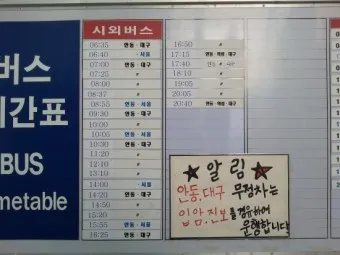 버스
시간표
BUS
timetable
시외버스
06:35 안동·대구
06:40 〃 ·서울
07:00 안동·대구
07:25 〃
08:00 〃
08:37 〃
08:55 안동·서울
09:30 안동·대구
10:05 안동·서울
10:30 안동·대구
11:20 〃
12:10 〃
13:20 〃
14:00 〃 ·서울
14:20 안동·대구
15:20 〃
15:55 안동·서울
16:25 안동·대구
16:50 〃
17:15
17:40
18:10 〃
19:05 〃
20:05 〃
20:40
★ 알림 ★
안동.대구 무정차는
입암.진보를 경유하여
운행합니다